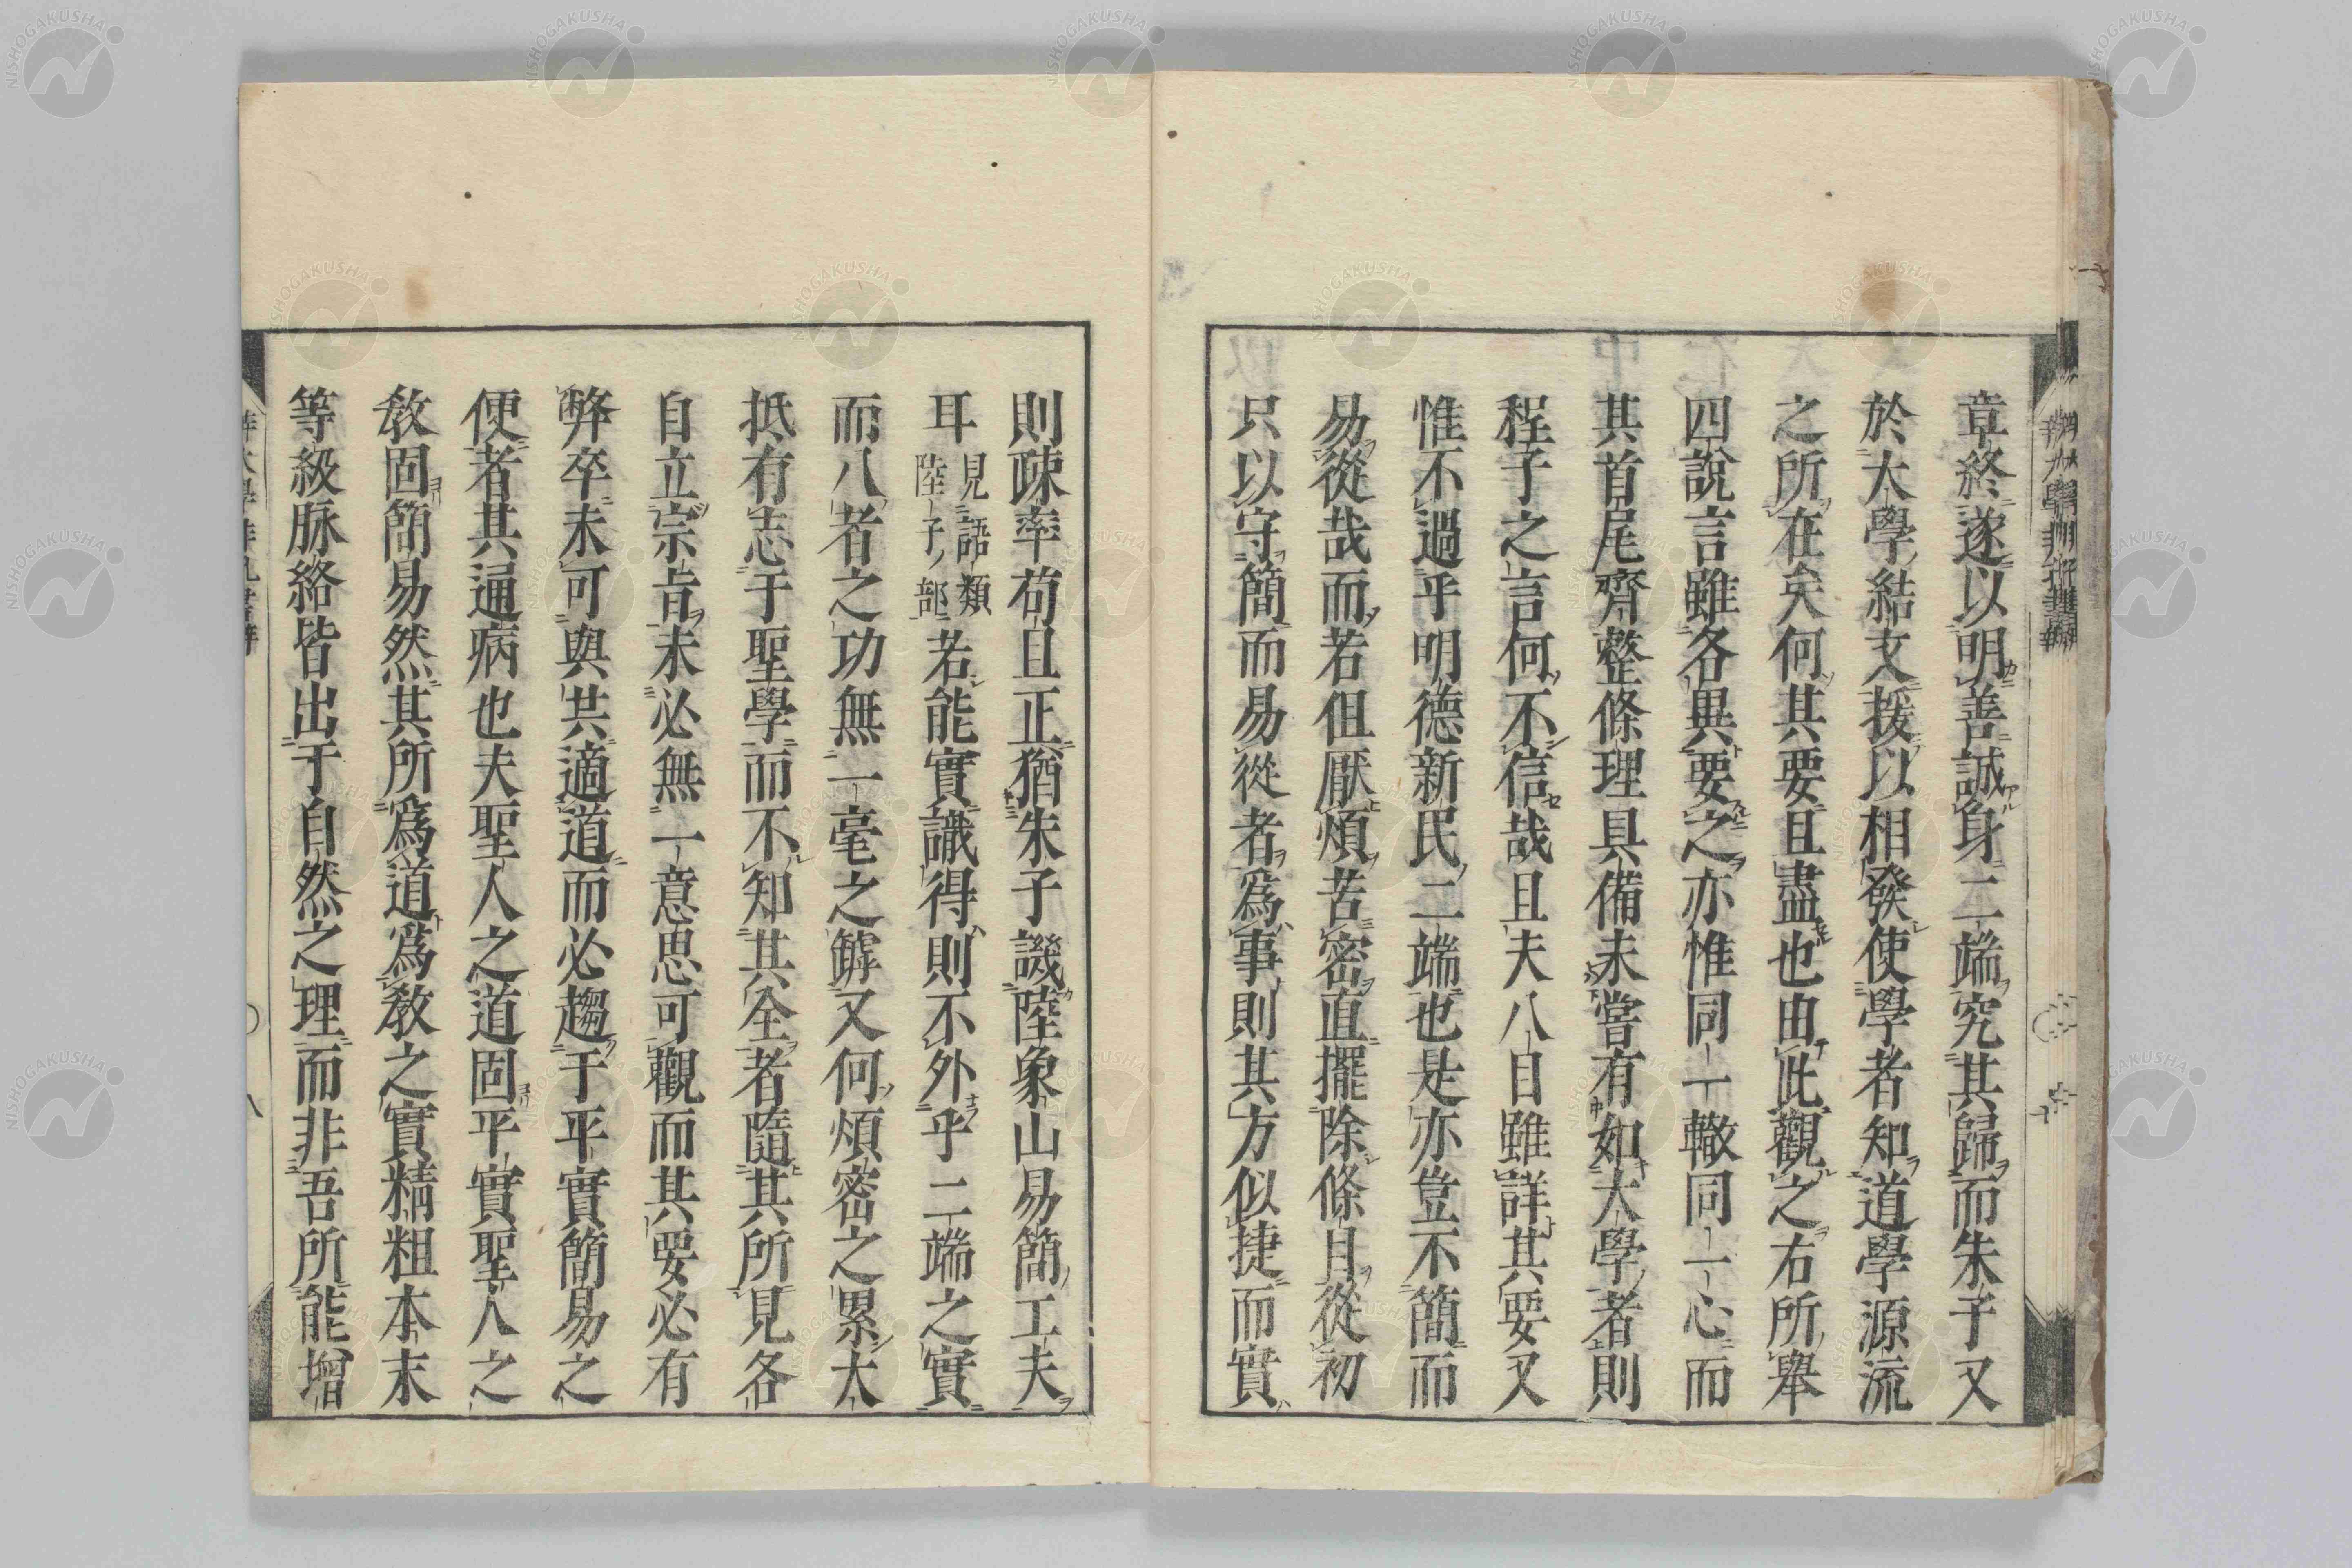 章終遂以明善誠身二端究其歸而朱子又
於大學結文援以相發使學者知道學源流
之所在矣何其要且盡也由此觀之右所舉
四說言雖各異要之亦惟同一轍同一心而
其首尾齊整條理具備未嘗有如大學者則
程子之言何不信哉且夫八目雖詳其要又
惟不過乎明德新民二端也是亦豈不簡而
易從哉而若但厭煩苦密直擺除條目從初
只以守簡而易從者爲事則其方似捷而實
則疎率苟且正猶朱子譏陸象山易簡工夫
耳見語類陸子部若能實識得則不外乎二端之實
而八者之功無一毫之罅又何煩密之累大
抵有志于聖學而不知其全者隨其所見各
自立宗旨未必無一意思可觀而其要必有
弊卒未可與共適道而必趨于平實簡易之
便者其通病也夫聖人之道固平實聖人之
教固簡易然其所爲道爲教之實精粗本末
等級脉絡皆出于自然之理而非吾所能增
八
NISHOGAKUSHA